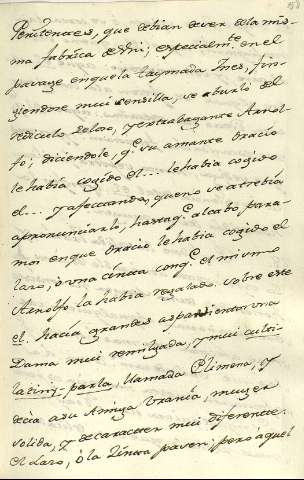 Penitences, que debian de ver de la mis-
ma fabrica de Uni; especialm.te en el
pasage en que la taymada Ines, fin-
giendose mui sensilla, se burló del
rediculo zeloso, y extrabagante Arnol-
fo; diciendole, q.e su amante Oracio
le habia cogido el... le habia cogido
el... y afectando, que no se atrebia
a pronunciarlo, hasta q.e al cabo para-
mos en que Oracio le habia cogido el
lazo, ò una cinta con q.e el mismo
Arnolfo la habia regalado. Sobre este
el. hacia grandes aspavientos una
Dama mui remilgada, y mui culti-
latiny-parla, llamada Climena, y
decia a su Amiga Urania, muger
solida, y de caracter mui diferente.
El Lazo, ò la Zinta pasen; pero aquel